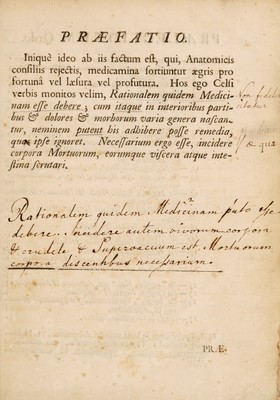 PRÆFATIO.
Iniquè ideo ab iis factum est, qui, Anatomicis
consiliis rejectis, medicamina sortiuntur ægris pro
fortunâ vel læsura vel profutura. Hos ego Celsi
verbis monitos velim, Rationalem quidem Medici-
nam esse debere; cum itaque in interioribus parti-
bus & dolores & morborum varia genera nascan-
tur, neminem putent his adhibere posse remedia,
quæ ipse ignoret. Necessarium ergo esse, incidere
corpora Mortuorum, eorumque viscera atque inte-
stina scrutari.
Non
quæ
Rationalem quidem Medicinam puto esse
debere. Incidere autem vivorum corpora
& crudele & Supervacuum est. Mortuorum
corpora discentibus necessarium.
PRÆ-